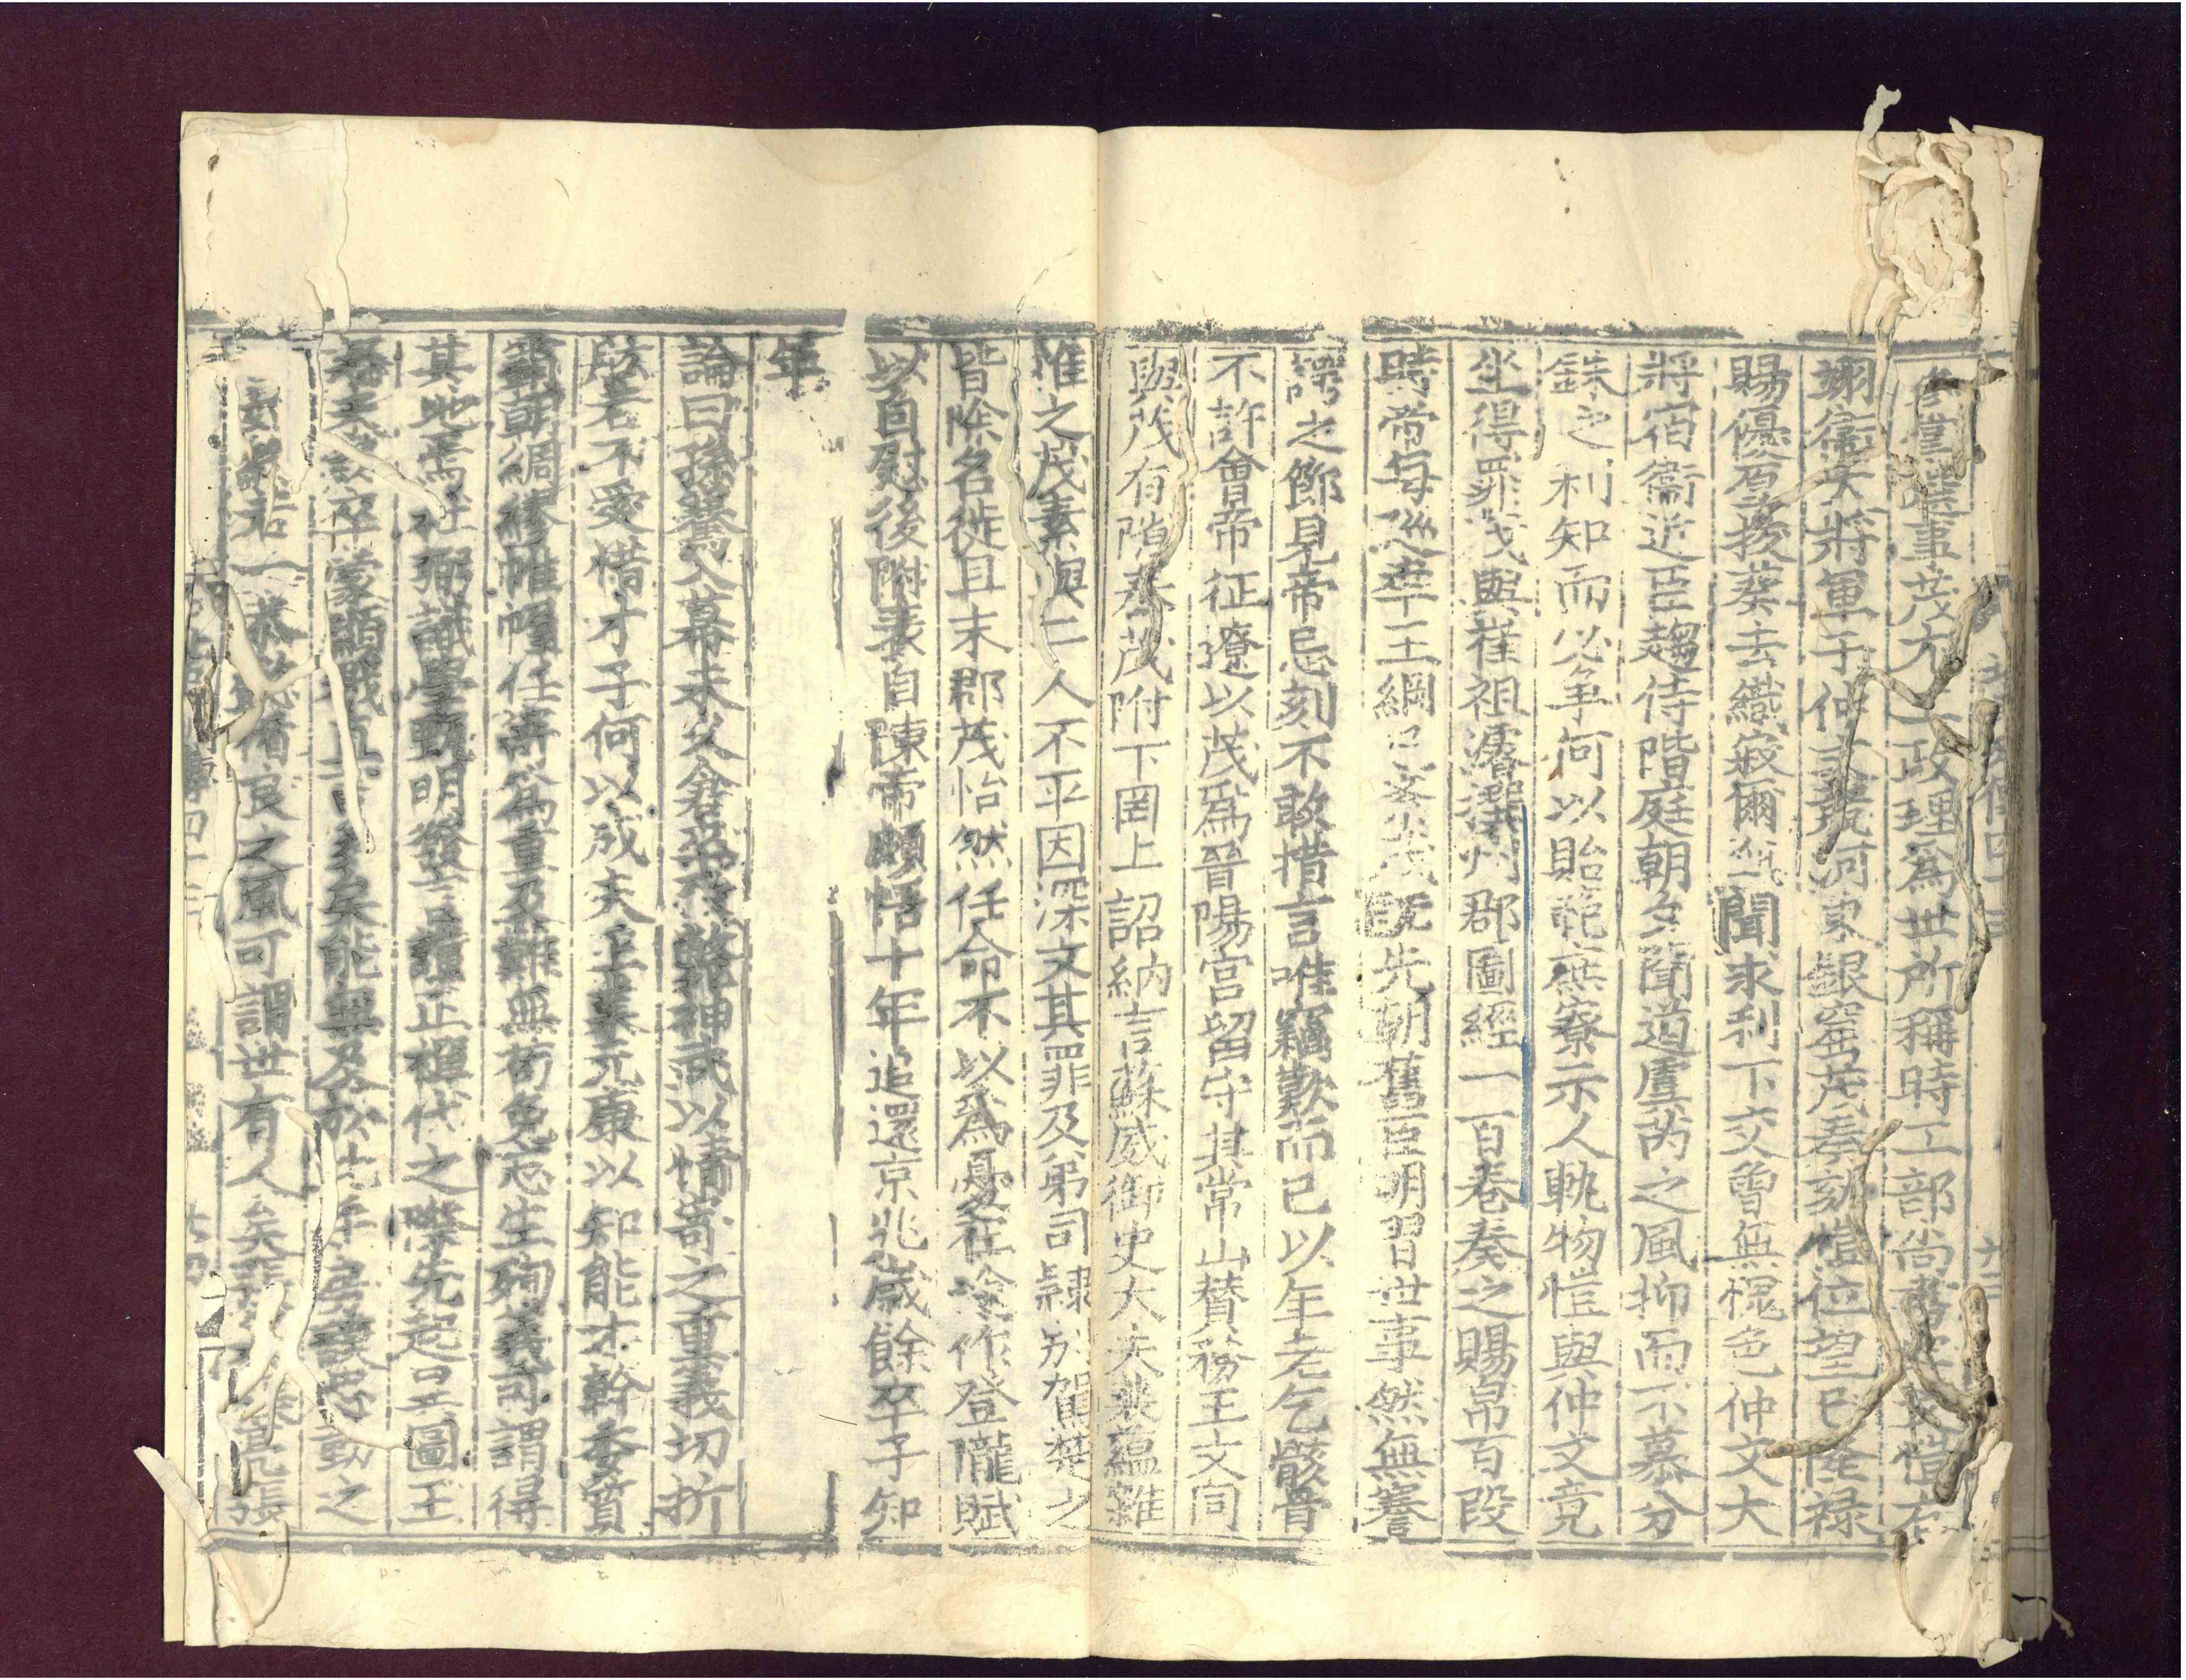 參掌選事茂尤工政理爲世所稱時工部尚書宇文愷右
翊衞大將軍于仲文競河東銀窟茂奏劾愷位望已隆祿
賜優厚拔葵去織寂爾無聞求利下交曾無愧色仲文大
將宿衞近臣趨侍階庭朝夕聞道虞芮之風抑而不慕分
銖之利知而必爭何以貽範庶寮示人軌物愷與仲文竟
坐得罪茂與崔祖濬撰州郡圖經一百卷奏之賜帛百段
時帝每巡幸王綱已紊茂既先朝舊臣明習世事然無謇
諤之節見帝忌刻不敢措言唯竊歎而已以年老乞骸骨
不許會帝征遼以茂爲晉陽宮留守其常山賛務王文同
與茂有隙奏茂附下罔上詔納言蘇威御史大夫裴蘊雜
推之茂素與二人不平因深文其罪及弟司隸別駕楚之
皆除名徙且末郡茂怡然任命不以爲憂在途作登隴賦
以自慰後附表自陳帝頗悟十年追還京兆歲餘卒子知
年
論曰孫騫入幕未久倉卒致斃神武以情寄之重義切折
肱若不愛惜才子何以成夫王業元康以知能才幹委質
霸朝綢繆帷幄任寄爲重及難無苟免忘生殉義可謂得
其地焉杜弼識學甄明發言讜正禪代之際先起異圖王
怒未怠卒蒙顯戮直言多矣能無及於此乎房謨忠勤之
若一恭懿循良之風可謂世有人矣張亮張